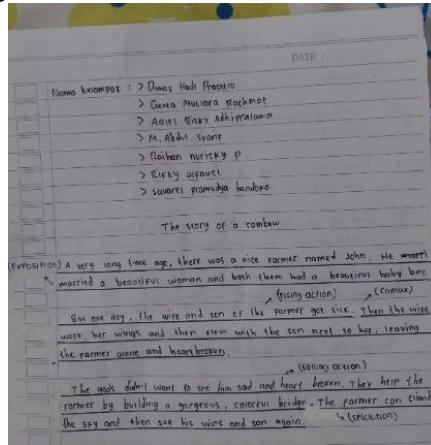 DATE :
Nama kelompok : > Dimas Hadi Prasetio
> Genta Mutiara Rachmat
> Ariel Risky Adhipratama
> M. Abdul Syarif
> Raihan nurisky P
> Rifky
> pramidya handoko
The story of a rainbow
(EXPOSITION) A very long time ago, there was a nice farmer named John. He
married a beautiful woman and both them had a beautiful baby boy.
(rising action) (climax)
But one day, the wife and son of the farmer got sick. Then the wife
wore her wings and then flew with the son next to her, leaving
the farmer alone and heartbroken.
(falling action)
The gods didn't want to see him sad and heart broken. They help the
farmer by building a gorgeous, colorful bridge. The farmer can climb
the sky and then see his wife and son again.
(resolution)